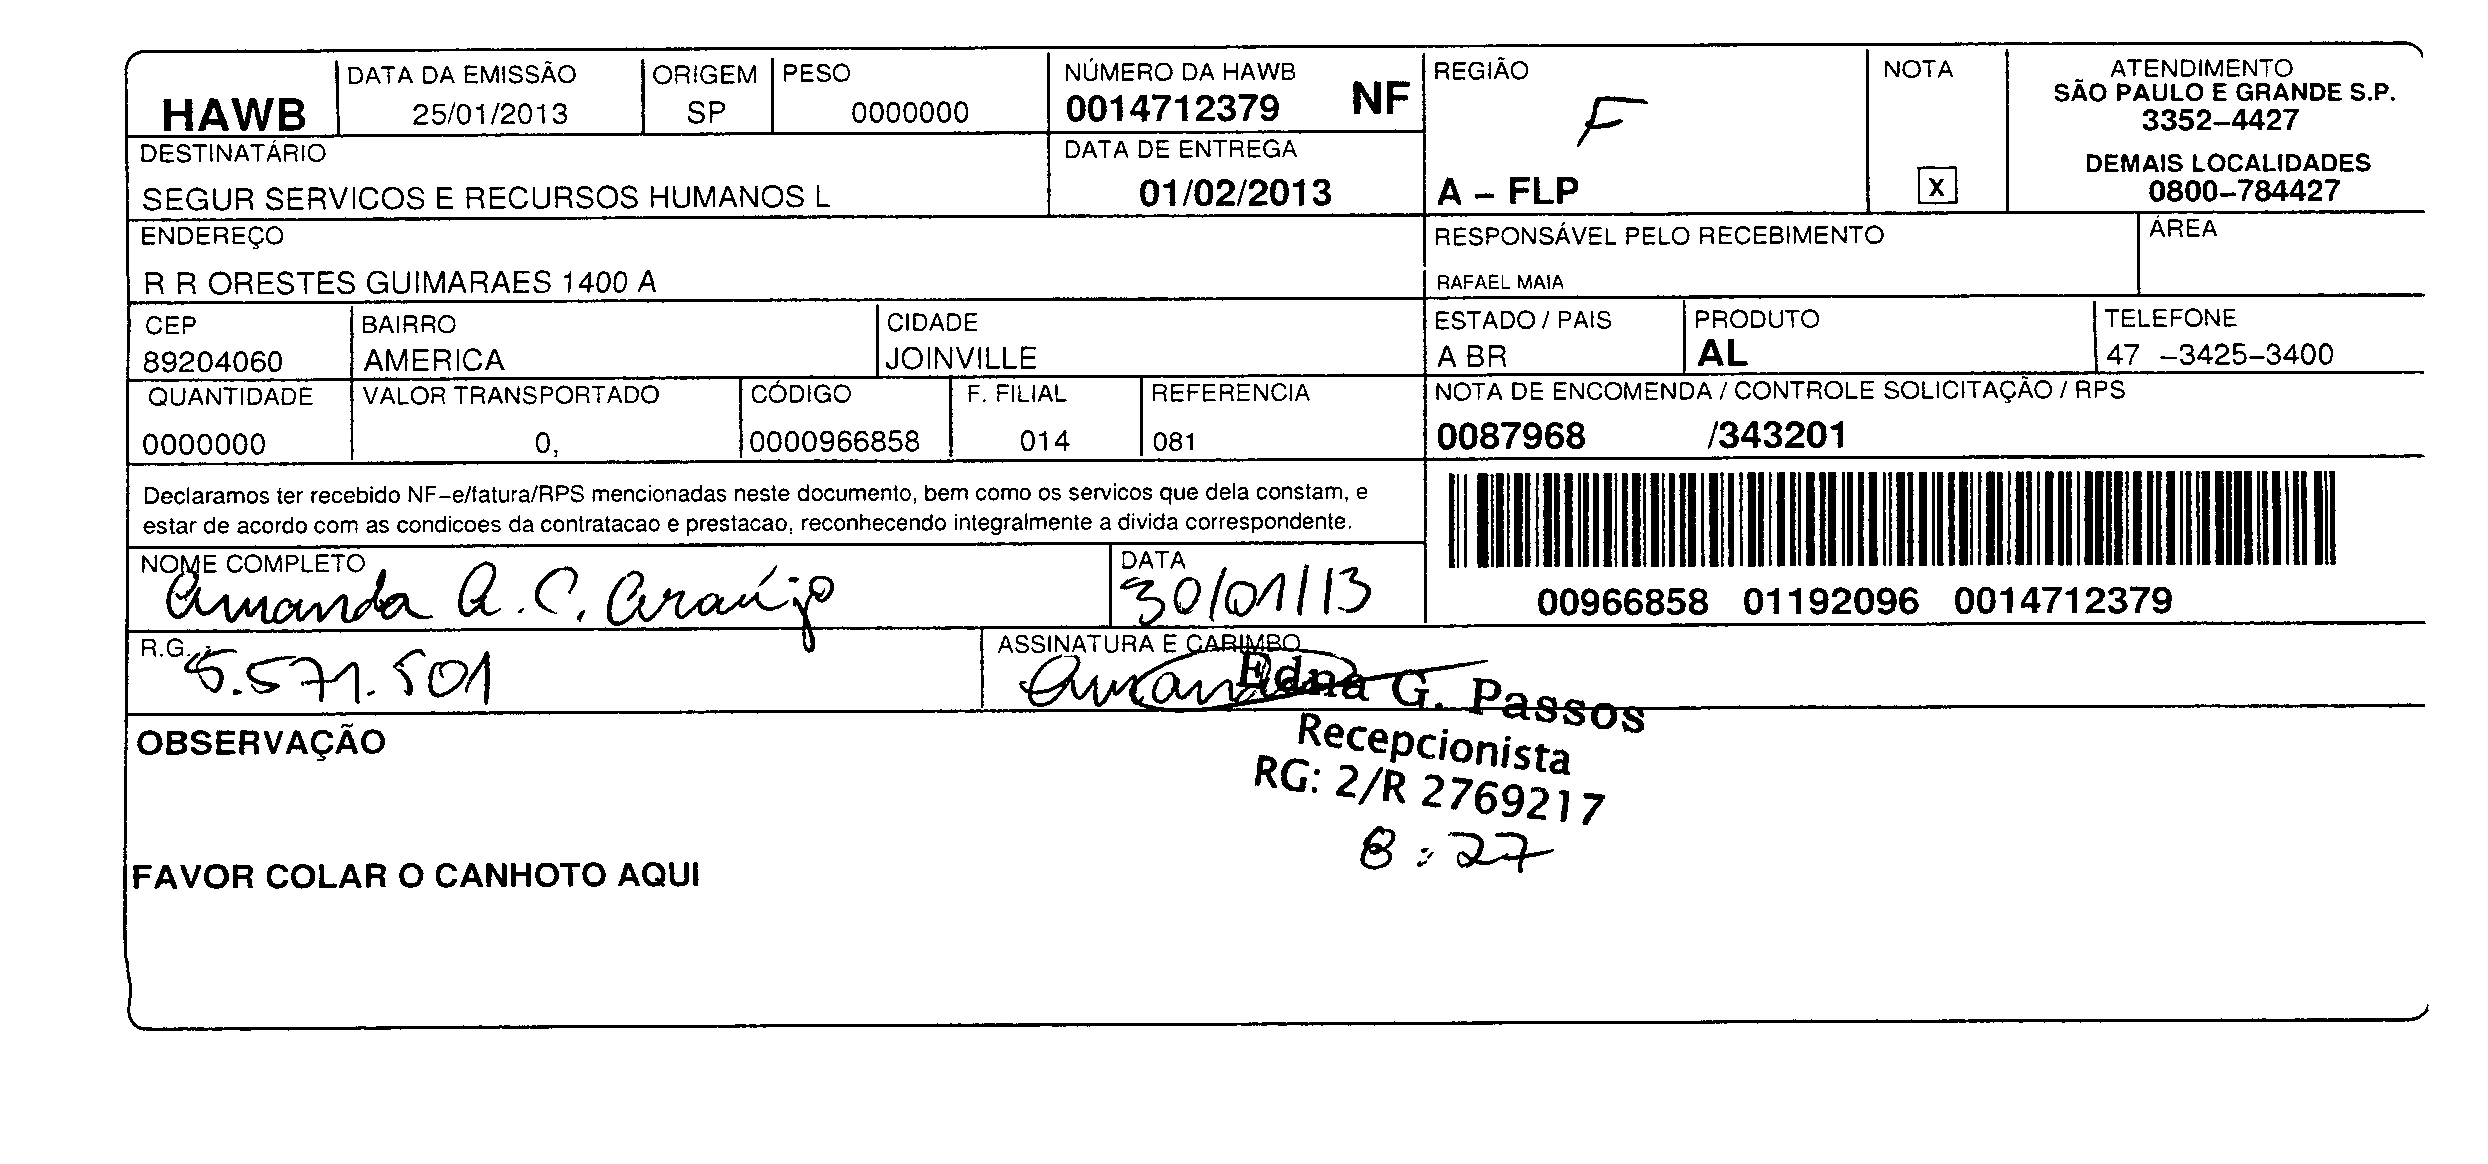 HAWB
DATA DA EMISSÃO
25/01/2013
ORIGEM
SP
PESO
0000000
NÚMERO DA HAWB
0014712379 NF
REGIÃO
F
A – FLP
NOTA
X
ATENDIMENTO
SÃO PAULO E GRANDE S.P.
3352–4427
DEMAIS LOCALIDADES
0800–784427
DESTINATÁRIO
SEGUR SERVICOS E RECURSOS HUMANOS L
DATA DE ENTREGA
01/02/2013
ENDEREÇO
R R ORESTES GUIMARAES 1400 A
RESPONSÁVEL PELO RECEBIMENTO
RAFAEL MAIA
ÁREA
CEP
89204060
BAIRRO
AMERICA
CIDADE
JOINVILLE
ESTADO / PAIS
A BR
PRODUTO
AL
TELEFONE
47 –3425–3400
QUANTIDADE
0000000
VALOR TRANSPORTADO
0,
CÓDIGO
0000966858
F. FILIAL
014
REFERENCIA
081
NOTA DE ENCOMENDA / CONTROLE SOLICITAÇÃO / RPS
0087968 /343201
Declaramos ter recebido NF–e/fatura/RPS mencionadas neste documento, bem como os servicos que dela constam, e
estar de acordo com as condicoes da contratacao e prestacao, reconhecendo integralmente a divida correspondente.
00966858 01192096 0014712379
NOME COMPLETO
Amanda A. C. Araújo
DATA
30/01/13
R.G.
5.571.501
ASSINATURA E CARIMBO
Amanda
Edna G. Passos
Recepcionista
RG: 2/R 2769217
8:27
OBSERVAÇÃO
FAVOR COLAR O CANHOTO AQUI